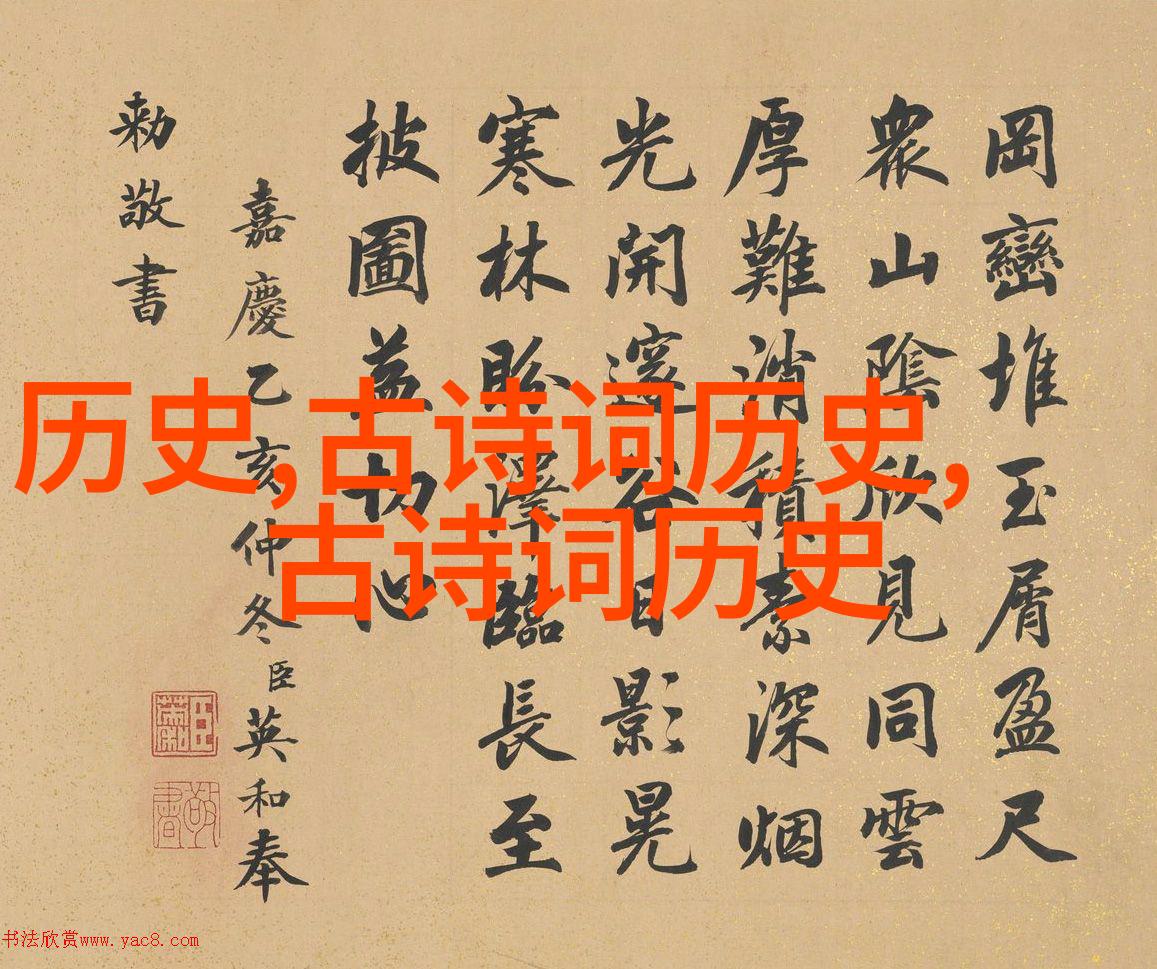 岡巒堆玉屑盈尺
衆山陰欣見同雲
厚難消積素深烟
光開邃谷日影晃
寒林盼澤臨長至
披圖益切心
嘉慶乙亥仲冬臣英和奉
勅敬書
历史,古诗词历史,
古诗词历史
臣
敬書
书法欣赏www.yac8.com